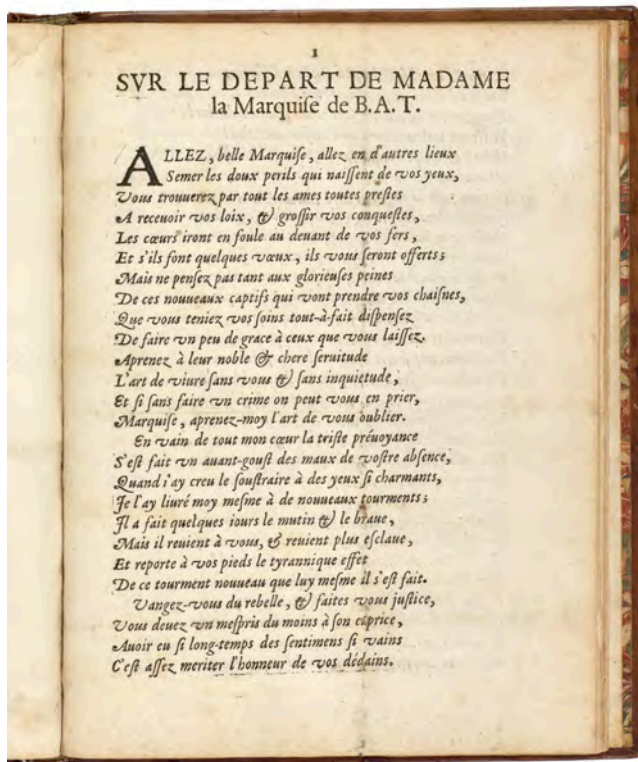 1
SVR LE DEPART DE MADAME
la Marquiſe de B.A.T.
ALLEZ, belle Marquiſe, allez en d'autres lieux
Semer les doux perils qui naiſſent de vos yeux,
Vous trouuerez par tout les ames toutes preſtes
A receuoir vos loix, & groſſir vos conqueſtes,
Les cœurs iront en foule au deuant de vos fers,
Et s'ils font quelques vœux, ils vous ſeront offerts;
Mais ne penſez pas tant aux glorieuſes peines
De ces nouueaux captifs qui vont prendre vos chaiſnes,
Que vous teniez vos ſoins tout-à-fait diſpenſez
De faire vn peu de grace à ceux que vous laiſſez.
Aprenez à leur noble & chere ſeruitude
L'art de viure ſans vous & ſans inquietude,
Et ſi ſans faire vn crime on peut vous en prier,
Marquiſe, aprenez-moy l'art de vous oublier.
En vain de tout mon cœur la triſte préuoyance
S'eſt fait vn auant-gouſt des maux de voſtre abſence,
Quand i'ay creu le ſouſtraire à des yeux ſi charmants,
Je l'ay liuré moy meſme à de nouueaux tourments;
Jl a fait quelques iours le mutin & le braue,
Mais il reuient à vous, & reuient plus eſclaue,
Et reporte à vos pieds le tyrannique effet
De ce tourment nouueau que luy meſme il s'eſt fait.
Vangez-vous du rebelle, & faites vous juſtice,
Vous deuez vn meſpris du moins à ſon caprice,
Auoir eu ſi long-temps des ſentimens ſi vains
C'eſt aſſez meriter l'honneur de vos dédains.